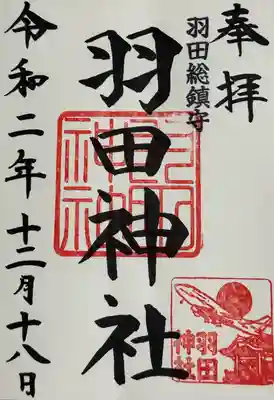 奉拝
羽田総鎮守
羽田神社
令和二年十二月十八日
羽田
神社